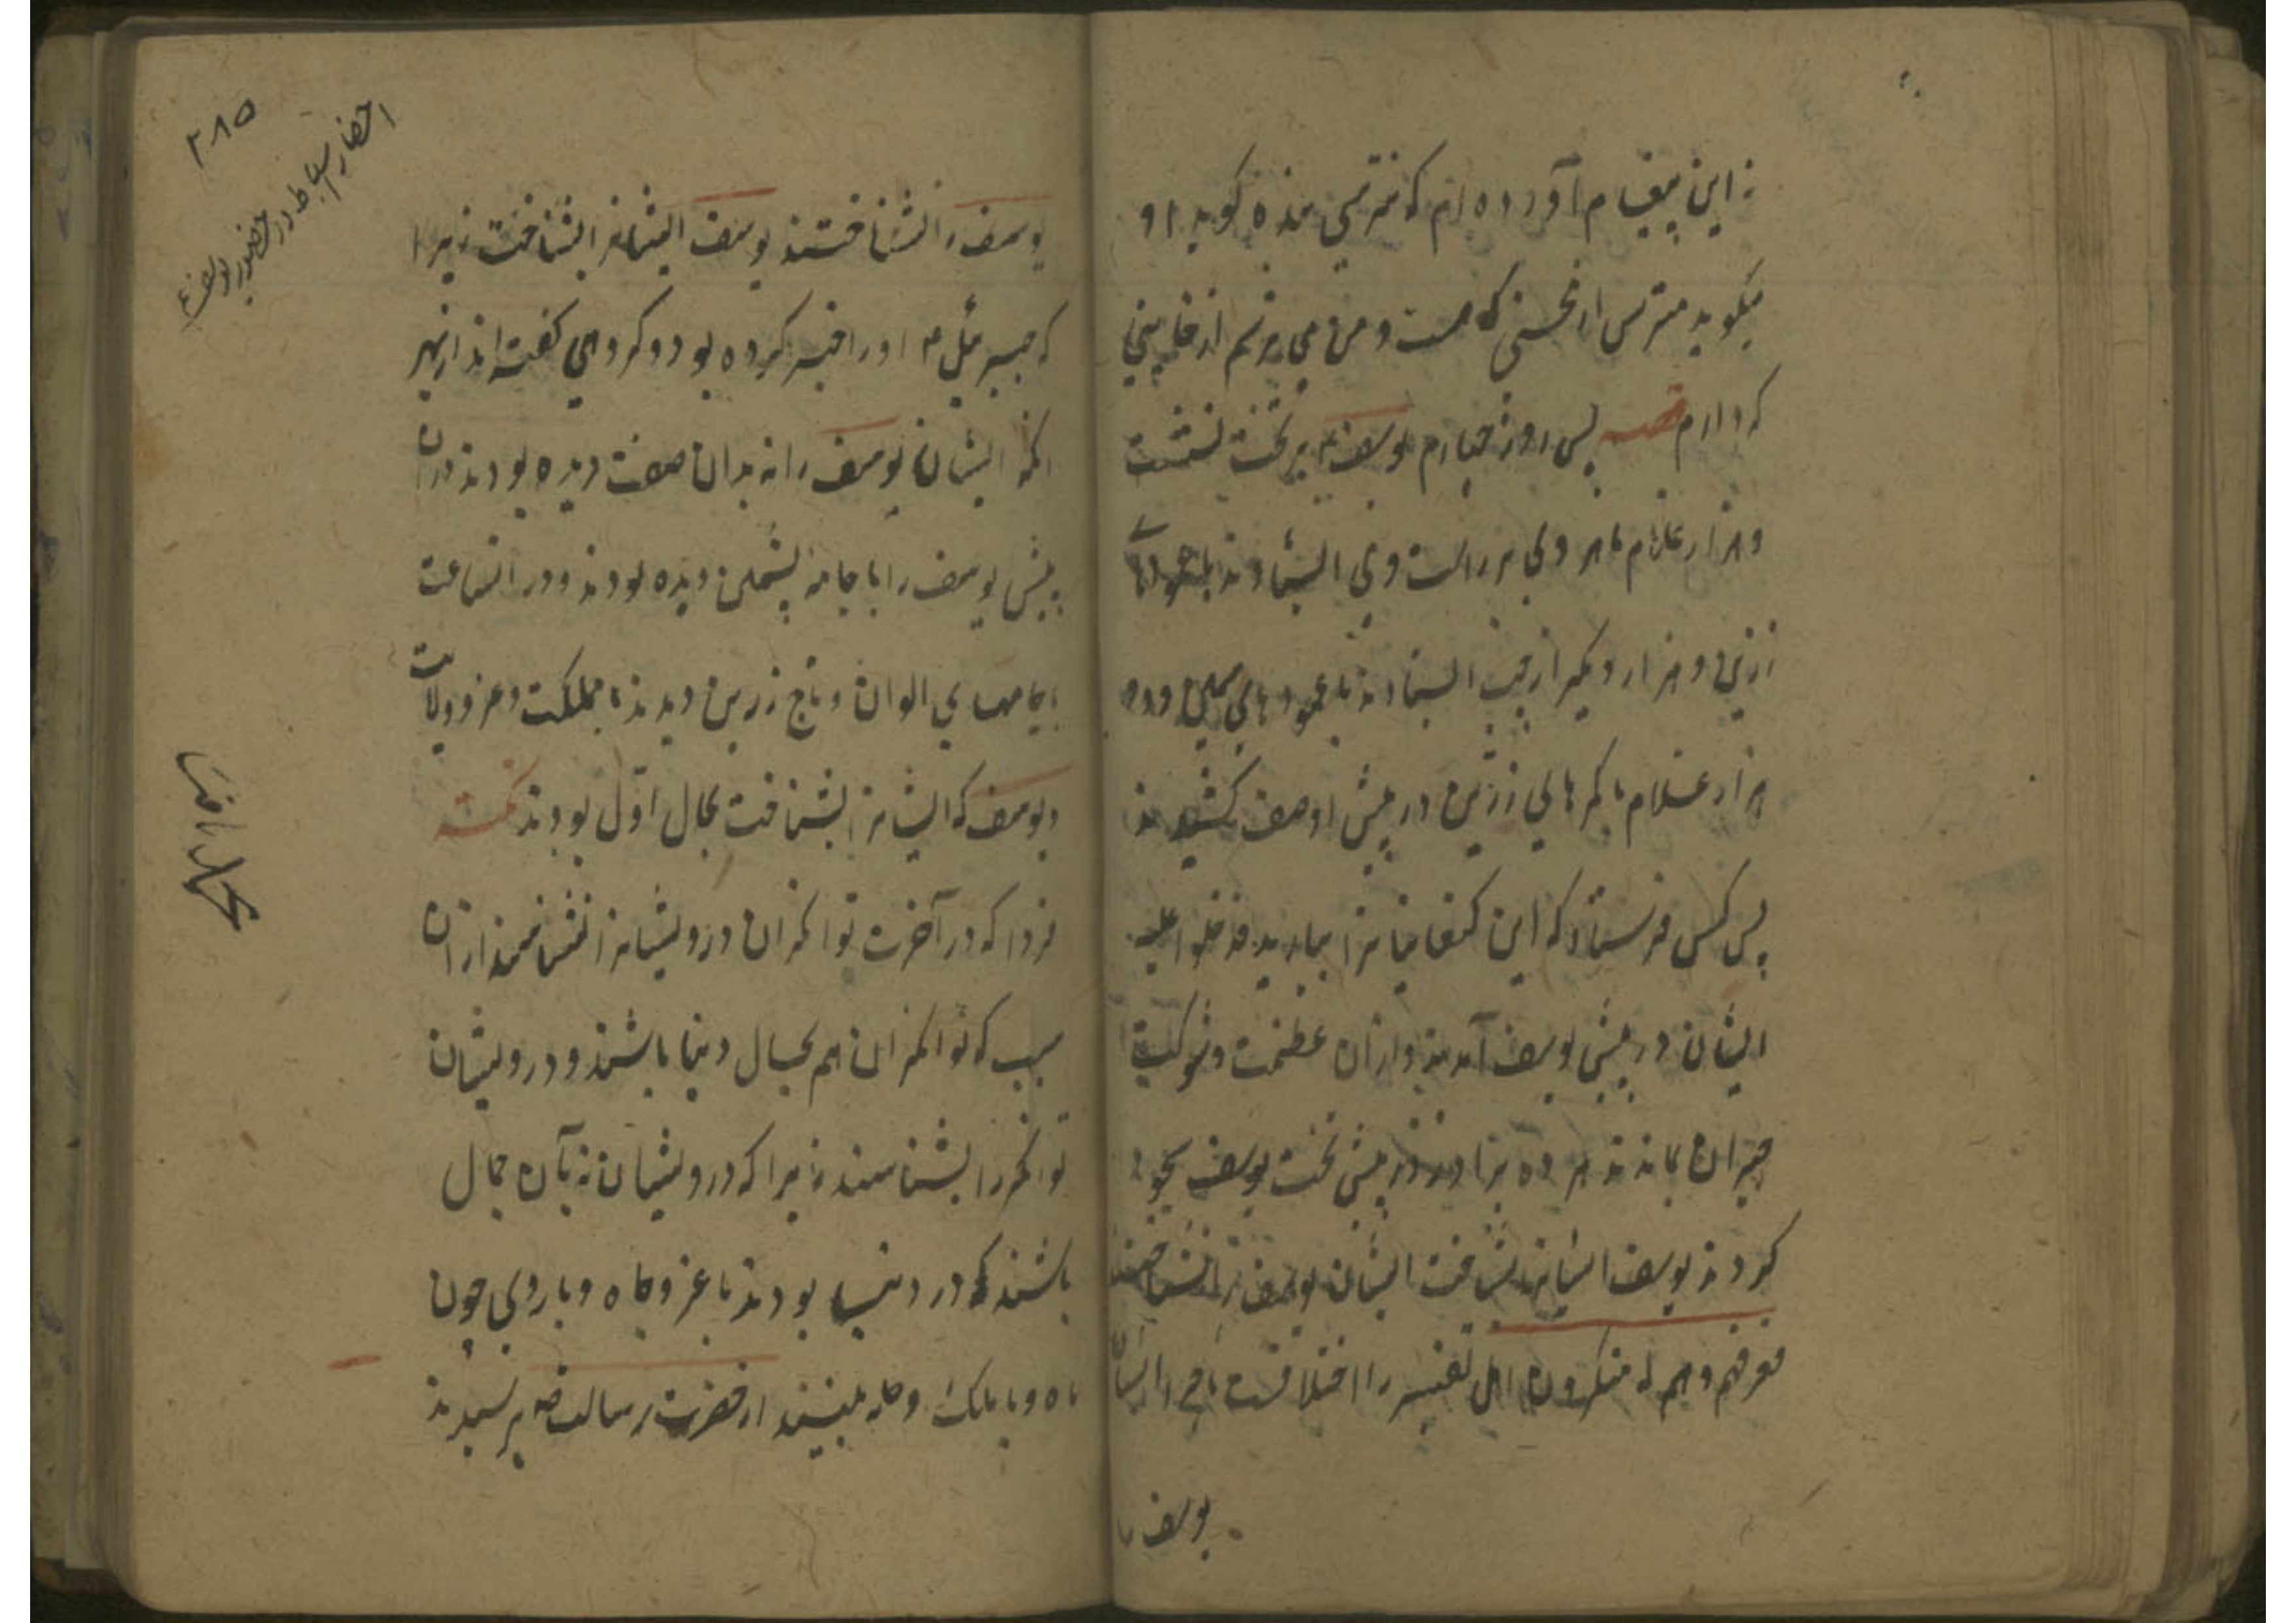 نه این پیغام آورده ام که مترسی بنده گوید او
میگوید مترس از نحسنی که هست و من می ترسم از خایینی
که دارم قصه پس روز چهارم یوسف بر تخت نشست
و هزار غلام ماهر وی بر راست وی ایستادند با عمودها
زرین و هزار دیگر از چپ ایستادند با عمودهای سیمین و ده
هزار غلام با کمرهای زرین در پیش او صف کشیدند
پس کس فرستاد که این کنعانیانرا بیارید فدخلوا علیه
ایشان در پیش یوسف آمدند و ازان عظمت و شوکت
حیران بماندند هر ده برادر در پیش تخت یوسف سجود
کردند یوسف ایشانرا بشناخت ایشان یوسف را نشناختند
فعرفهم و هم له منکرون اهل تفسیر را اختلافست
یوسف را
۲۸۵
احضار اسباط در حضور یوسف ع
یوسف را نشناختند یوسف ایشانرا بشناخت زیرا
که جبرئیل ۴ او را خبر کرده بود و گروهی گفته اند از بهر
انکه ایشان یوسف را نه بدان صفت دیده بودند دران
پیش یوسف را با جامه پشمین دیده بودند و در انساعت
با جامهای الوان و تاج زرین دیدند با مملکت و عز و ولایت
و یوسف که ایشانرا بشناخت بحال اول بودند نکته
فردا که در آخرت توانکران درویشانرا نشناسند ازان
سبب که توانکران هم بحال دنیا باشند و درویشان
توانکر را بشناسند زیرا که درویشان نه بآن حال
باشند که در دنیا بودند با عز و جاه و با روی چون
ماه و با ملک و حله بینند از حضرت رسالت صه پرسیدند